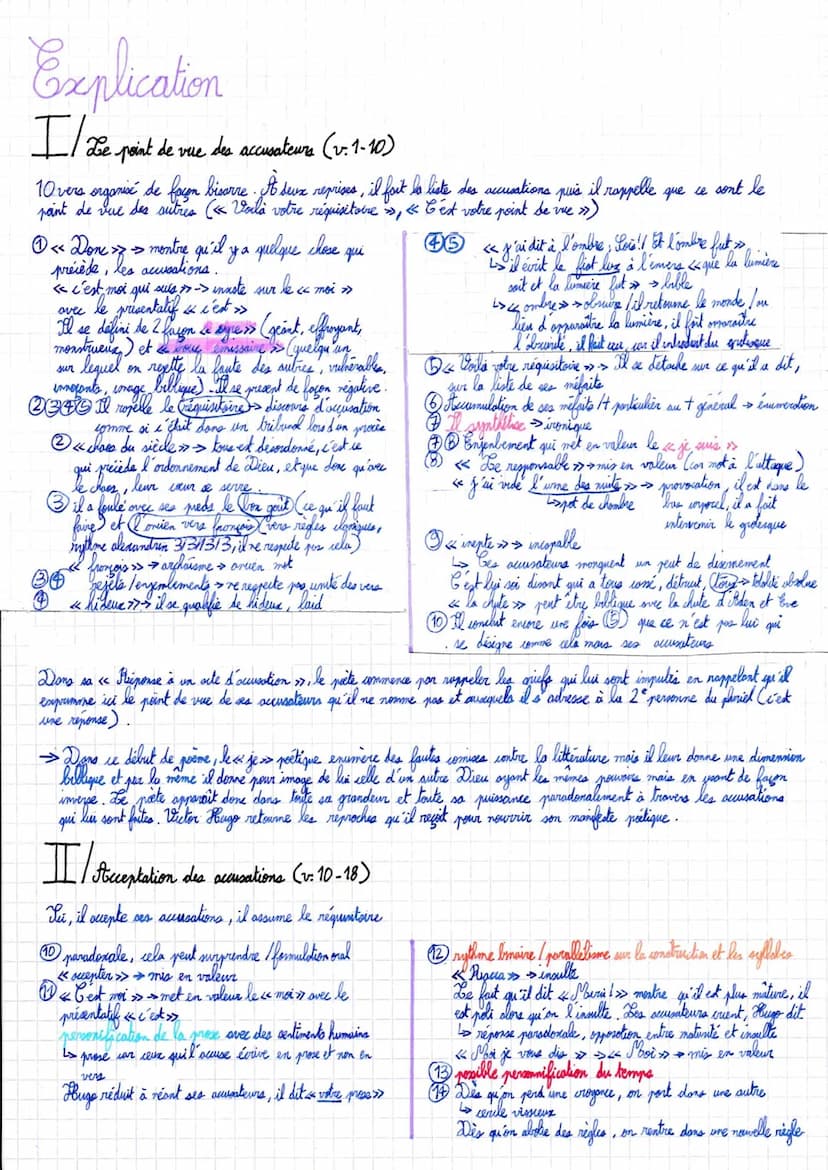 Explication
I/ Le point de vue des accusateurs (v. 1-10)
10 vers organisé de façon bizarre. À deux reprises, il fait la liste des accusations puis il rappelle que ce sont le
point de vue des autres (« Voilà votre réquisitoire », « C'est votre point de vue »)
① « Donc » → montre qu'il y a quelque chose qui
précède, les accusations.
« c'est moi qui suis » → insiste sur le « moi »
avec le présentatif « c'est »
Il se défini de 2 façon « ogre » (géant, effrayant,
monstrueux) et « bouc émissaire » (quelqu'un
sur lequel on rejette la faute des autres, vulnérables,
innocents, image biblique). Il se présent de façon négative.
②③④⑤ Il rapelle le réquisitoire → discours d'accusation
comme si c'était dans un tribunal lors d'un procès
② « chaos du siècle » → tous est désordonné, c'est ce
qui précède l'ordonnement de Dieu, et que donc qu'avec
le chaos, leur cœur se serre
③ il a foulé avec ses pieds le bon goût (ce qu'il faut
faire) et l'ancien vers françois (vers règles classiques,
rythme alexandrin 3/3/3/3, il ne respecte pas cela)
« françois » → archaïsme → ancien mot
③④ rejets/enjembements → ne respecte pas unité des vers
④ « hideux » → il se qualifie de hideux, laid
④⑤ « j'ai dit à l'ombre : Sois ! / Et l'ombre fut »
↳ il écrit le fiat lux à l'envers « que la lumière
soit et la lumière fut » → bible
↳ « ombre » → obscure / il retourne le monde / au
lieu d'apparaître la lumière, il fait apparaître
l'obscurité, il fait ceci, car il introduit du grotesque
⑤ « Voilà votre réquisitoire » → Il se détache sur ce qu'il a dit,
sur la liste de ses méfaits
⑥ Accumulation de ses méfaits / + particulier au + général → énumération
⑦ Il synthétise → ironique
⑦⑧ Enjenbement qui met en valeur le « je suis »
⑧ « Le responsable » → mis en valeur (car mot à l'attaque)
« J'ai vidé l'urne des nuits » → provocation, il est dans le
↳ pot de chambre bas corporel, il a fait
intervenir le grotesque
⑨ « inepte » → incapable
↳ Ces accusateurs manquent un peut de dicernement
C'est lui soi disant qui a tous cassé, détruit, tous → totalité absolue
« la chute » peut être biblique avec la chute d'Adan et Eve
⑩ Il conclut encore une fois (⑤) que ce n'est pas lui qui
se désigne comme cela mais ses accusateurs
Dans sa « Réponse à un acte d'accusation », le poète commence par rappeler les griefs qui lui sont imputés en rappelant qu'il
exprimme ici le point de vue de ses accusateurs qu'il ne nomme pas et auxquels il s'adresse à la 2e personne du pluriel (c'est
une réponse).
→ Dans ce début de poème, le « je » poétique énumère des fautes comises contre la littérature mais il leur donne une dimension
biblique et par la même il donne pour image de lui celle d'un autre Dieu ayant les mêmes pouvoirs mais en usant de façon
inverse. Le poète apparaît donc dans toute sa grandeur et toute sa puissance paradoxalement à travers les accusations
qui lui sont faites. Victor Hugo retourne les reproches qu'il reçoit pour nourrir son manifeste poétique.
II/ Acceptation des accusations (v. 10-18)
Ici, il accepte ces accusations, il assume le réquisitoire
⑩ paradoxale, cela peut surprendre / formulation oral
« accepter » → mis en valeur
⑪ « C'est moi » → met en valeur le « moi » avec le
présentatif « c'est »
personification de la prose avec des sentiments humains
↳ prose car ceux qui l'accuse écrive en prose et non en
vers
Hugo réduit à néant ses accusateurs, il dit « votre prose »
⑫ rythme binaire / parallélisme sur la construction et les syllabes
« Racca » → insulte
Le fait qu'il dit « Merci ! » montre qu'il est plus mâture, il
est poli alors qu'on l'insulte. Les accusateurs crient, Hugo dit
↳ réponse paradoxale, opposition entre maturité et insulte
« Moi je vous dis » → « Moi » → mis en valeur
⑬ possible personnification du temps
⑭ Dès qu'on perd une croyance, on part dans une autre
↳ cercle vissieux
Dès qu'on abolie des règles, on rentre dans une nouvelle règle